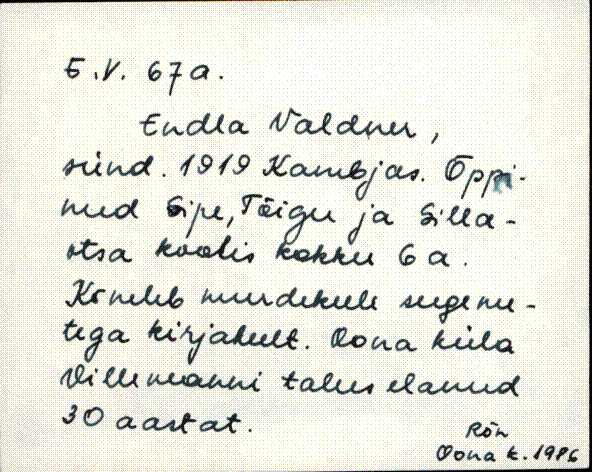 E.V. 67 a.
Endla Valdner,
sünd. 1919 Kambjas. Õppi-
nud Sipe, Tõigu ja Silla-
otsa koolis kokku 6 a.
Kõneleb murdekeele sugeme-
tega kirjakeelt. Oona küla
Villemanni talus elanud
30 aastat.
Rõn
Oona k. 1986